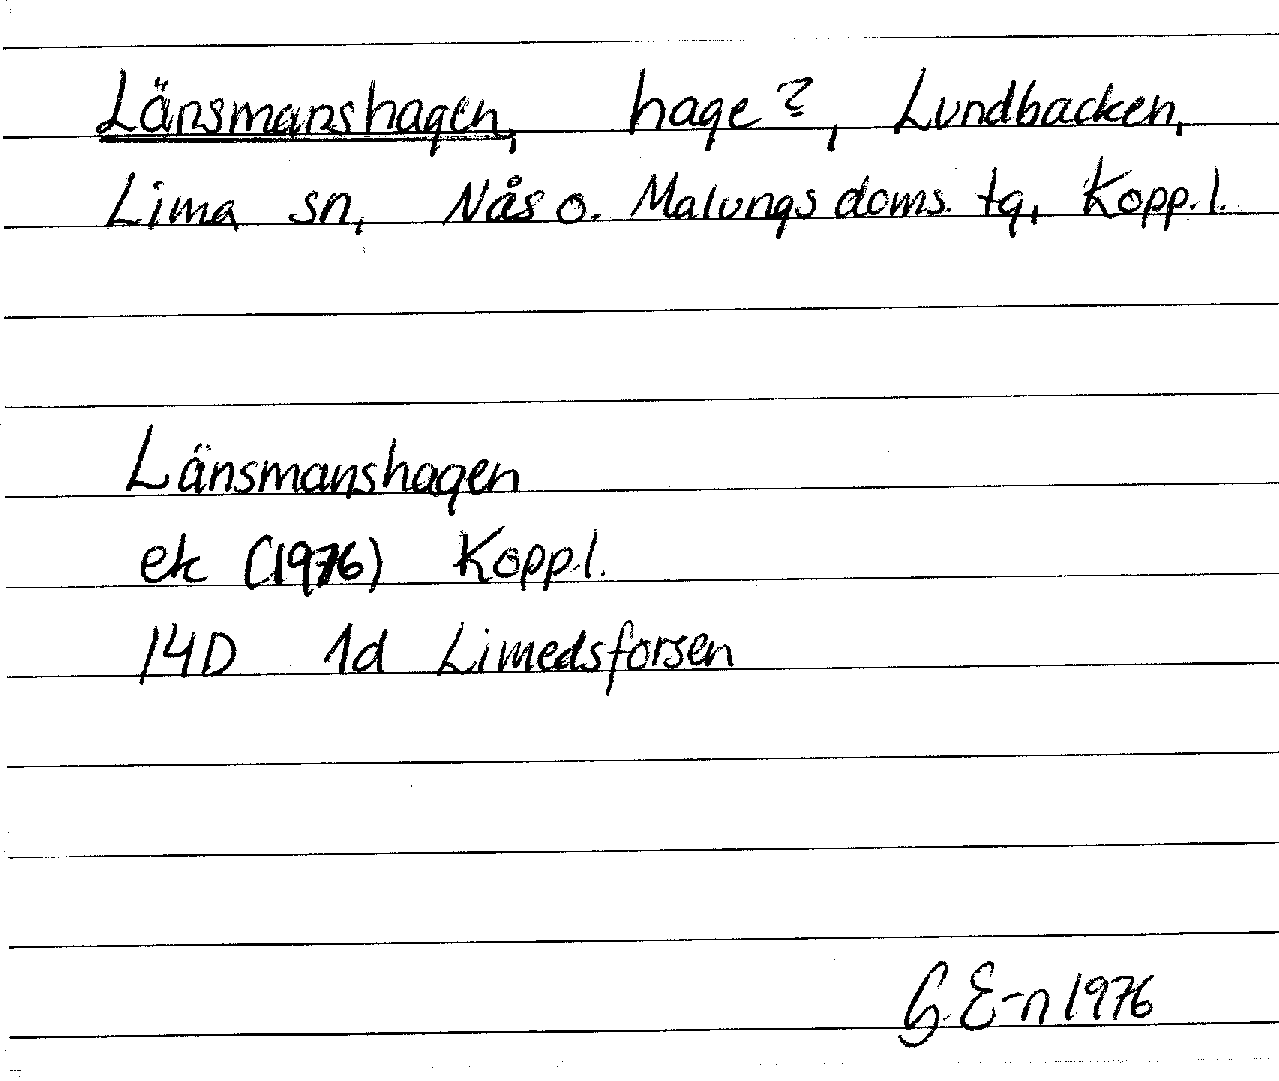 Länsmanshagen, hage?, Lundbacken,
Lima sn, Nås o. Malungs doms. tg, Kopp.l.
Länsmanshagen
ek (1976) Kopp.l.
14D 1d Limedsforsen
G. E-n 1976